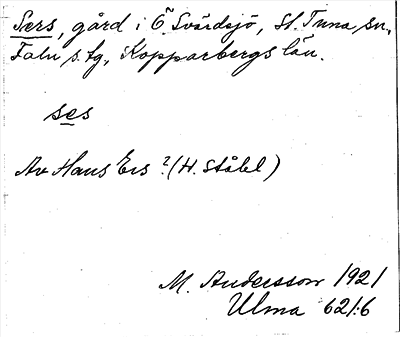 Sers, gård i Ö. Svärdsjö, St. Tuna sn,
Falu s. tg, Kopparbergs län.
ses
Av Hans Ers ? (H. Ståhl)
M. Andersson 1921
Ulma 621:6